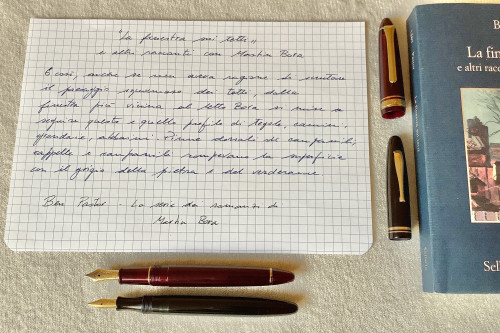 "La finestra sui tetti„
e altri racconti con Martin Bora
E così, anche se non aveva ragione di scrutare
il paesaggio squamoso dei tetti, dalla
finestra più vicina al letto Bora si mise a
seguire questo e quello profilo di tegole, camini,
grondaie, abbaini. Pinne dorsali di campanili,
cappelle e campanili rompevano la superficie
con il grigio della pietra e del verderame.
Ben Pastor - La serie dei romanzi di
Martin Bora
B
La fin
e altri racc
Sell